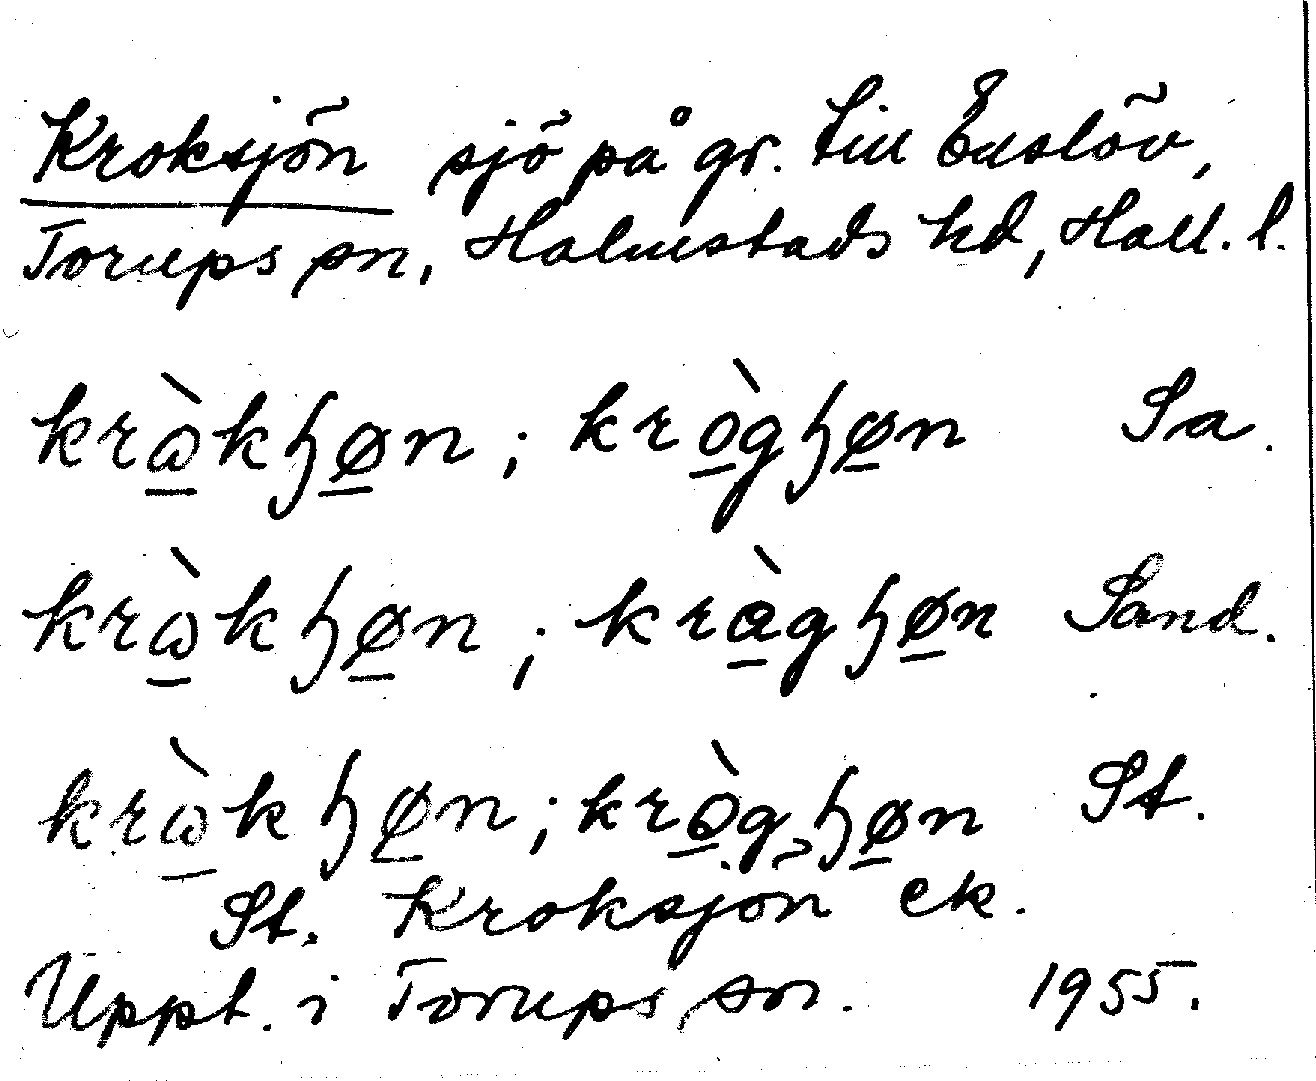 Kroksjön sjö på gr. till Enslöv,
Torups sn, Halmstads hd, Hall. l.
krὼ̲kɧø̲n ; krò̲gɧø̲n Sa.
krὼ̲kɧø̲n ; krà̲gɧø̲n Sand.
krὼ̲kɧø̲n ; krò̲gɧø̲n St.
St. Kroksjön ek.
Uppt. i Torups sn. 1955.